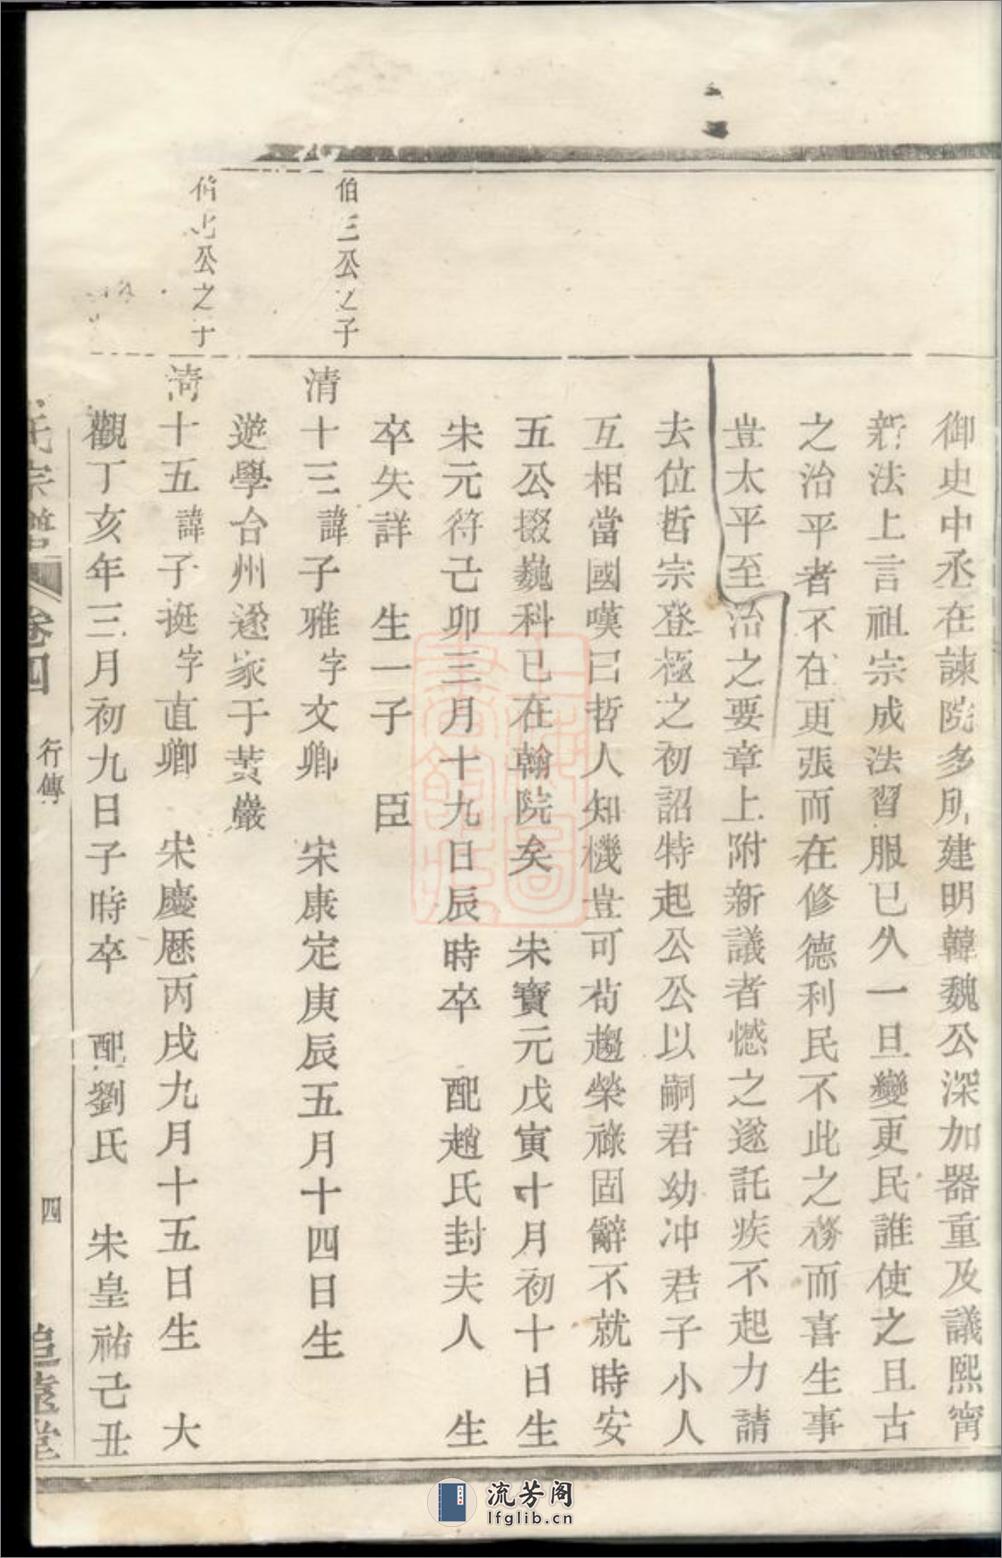 御史中丞在諫院多所建明韓魏公深加器重及議熙甯
新法上言祖宗成法習服已久一旦變更民誰使之且古
之治平者不在更張而在修德利民不此之務而喜生事
豈太平至治之要章上附新議者憾之遂託疾不起力請
去位哲宗登極之初詔特起公公以嗣君幼冲君子小人
互相當國嘆曰哲人知機豈可苟趨榮祿固辭不就時安
五公掇巍科已在翰院矣 宋寶元戊寅十月初十日生
宋元符己卯三月十九日辰時卒 配趙氏封夫人 生
卒失詳 生一子 臣
伯三公之子
清十三諱子雅字文卿 宋康定庚辰五月十四日生
遊學台州遂家于黃巖
公之子
清十五諱子挺字直卿 宋慶厯丙戌九月十五日生 大
觀丁亥年三月初九日子時卒 配劉氏 宋皇祐己丑
氏宗譜 卷四 行傳 四 追遠堂
流芳阁
lfglib.cn